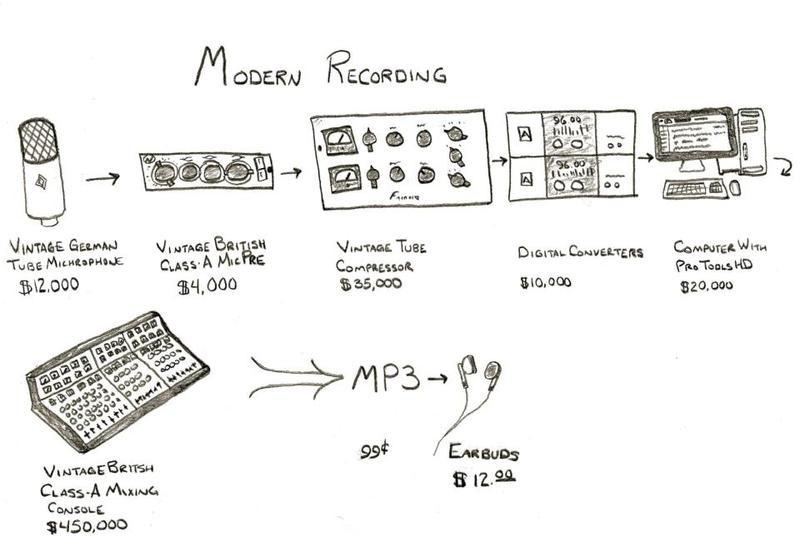 MODERN RECORDING
96.00
96.00
VINTAGE GERMAN
TUBE MICHROPHONE
$12,000
VINTAGE BRITISH
CLASS-A MIC PRE
$4,000
VINTAGE TUBE
COMPRESSOR
$35,000
DIGITAL CONVERTERS
$10,000
COMPUTER WITH
PRO TOOLS HD
$20,000
MP3
99¢
EARBUDS
$12.00
VINTAGE BRITSH
CLASS-A MIXING
CONSOLE
$450,000